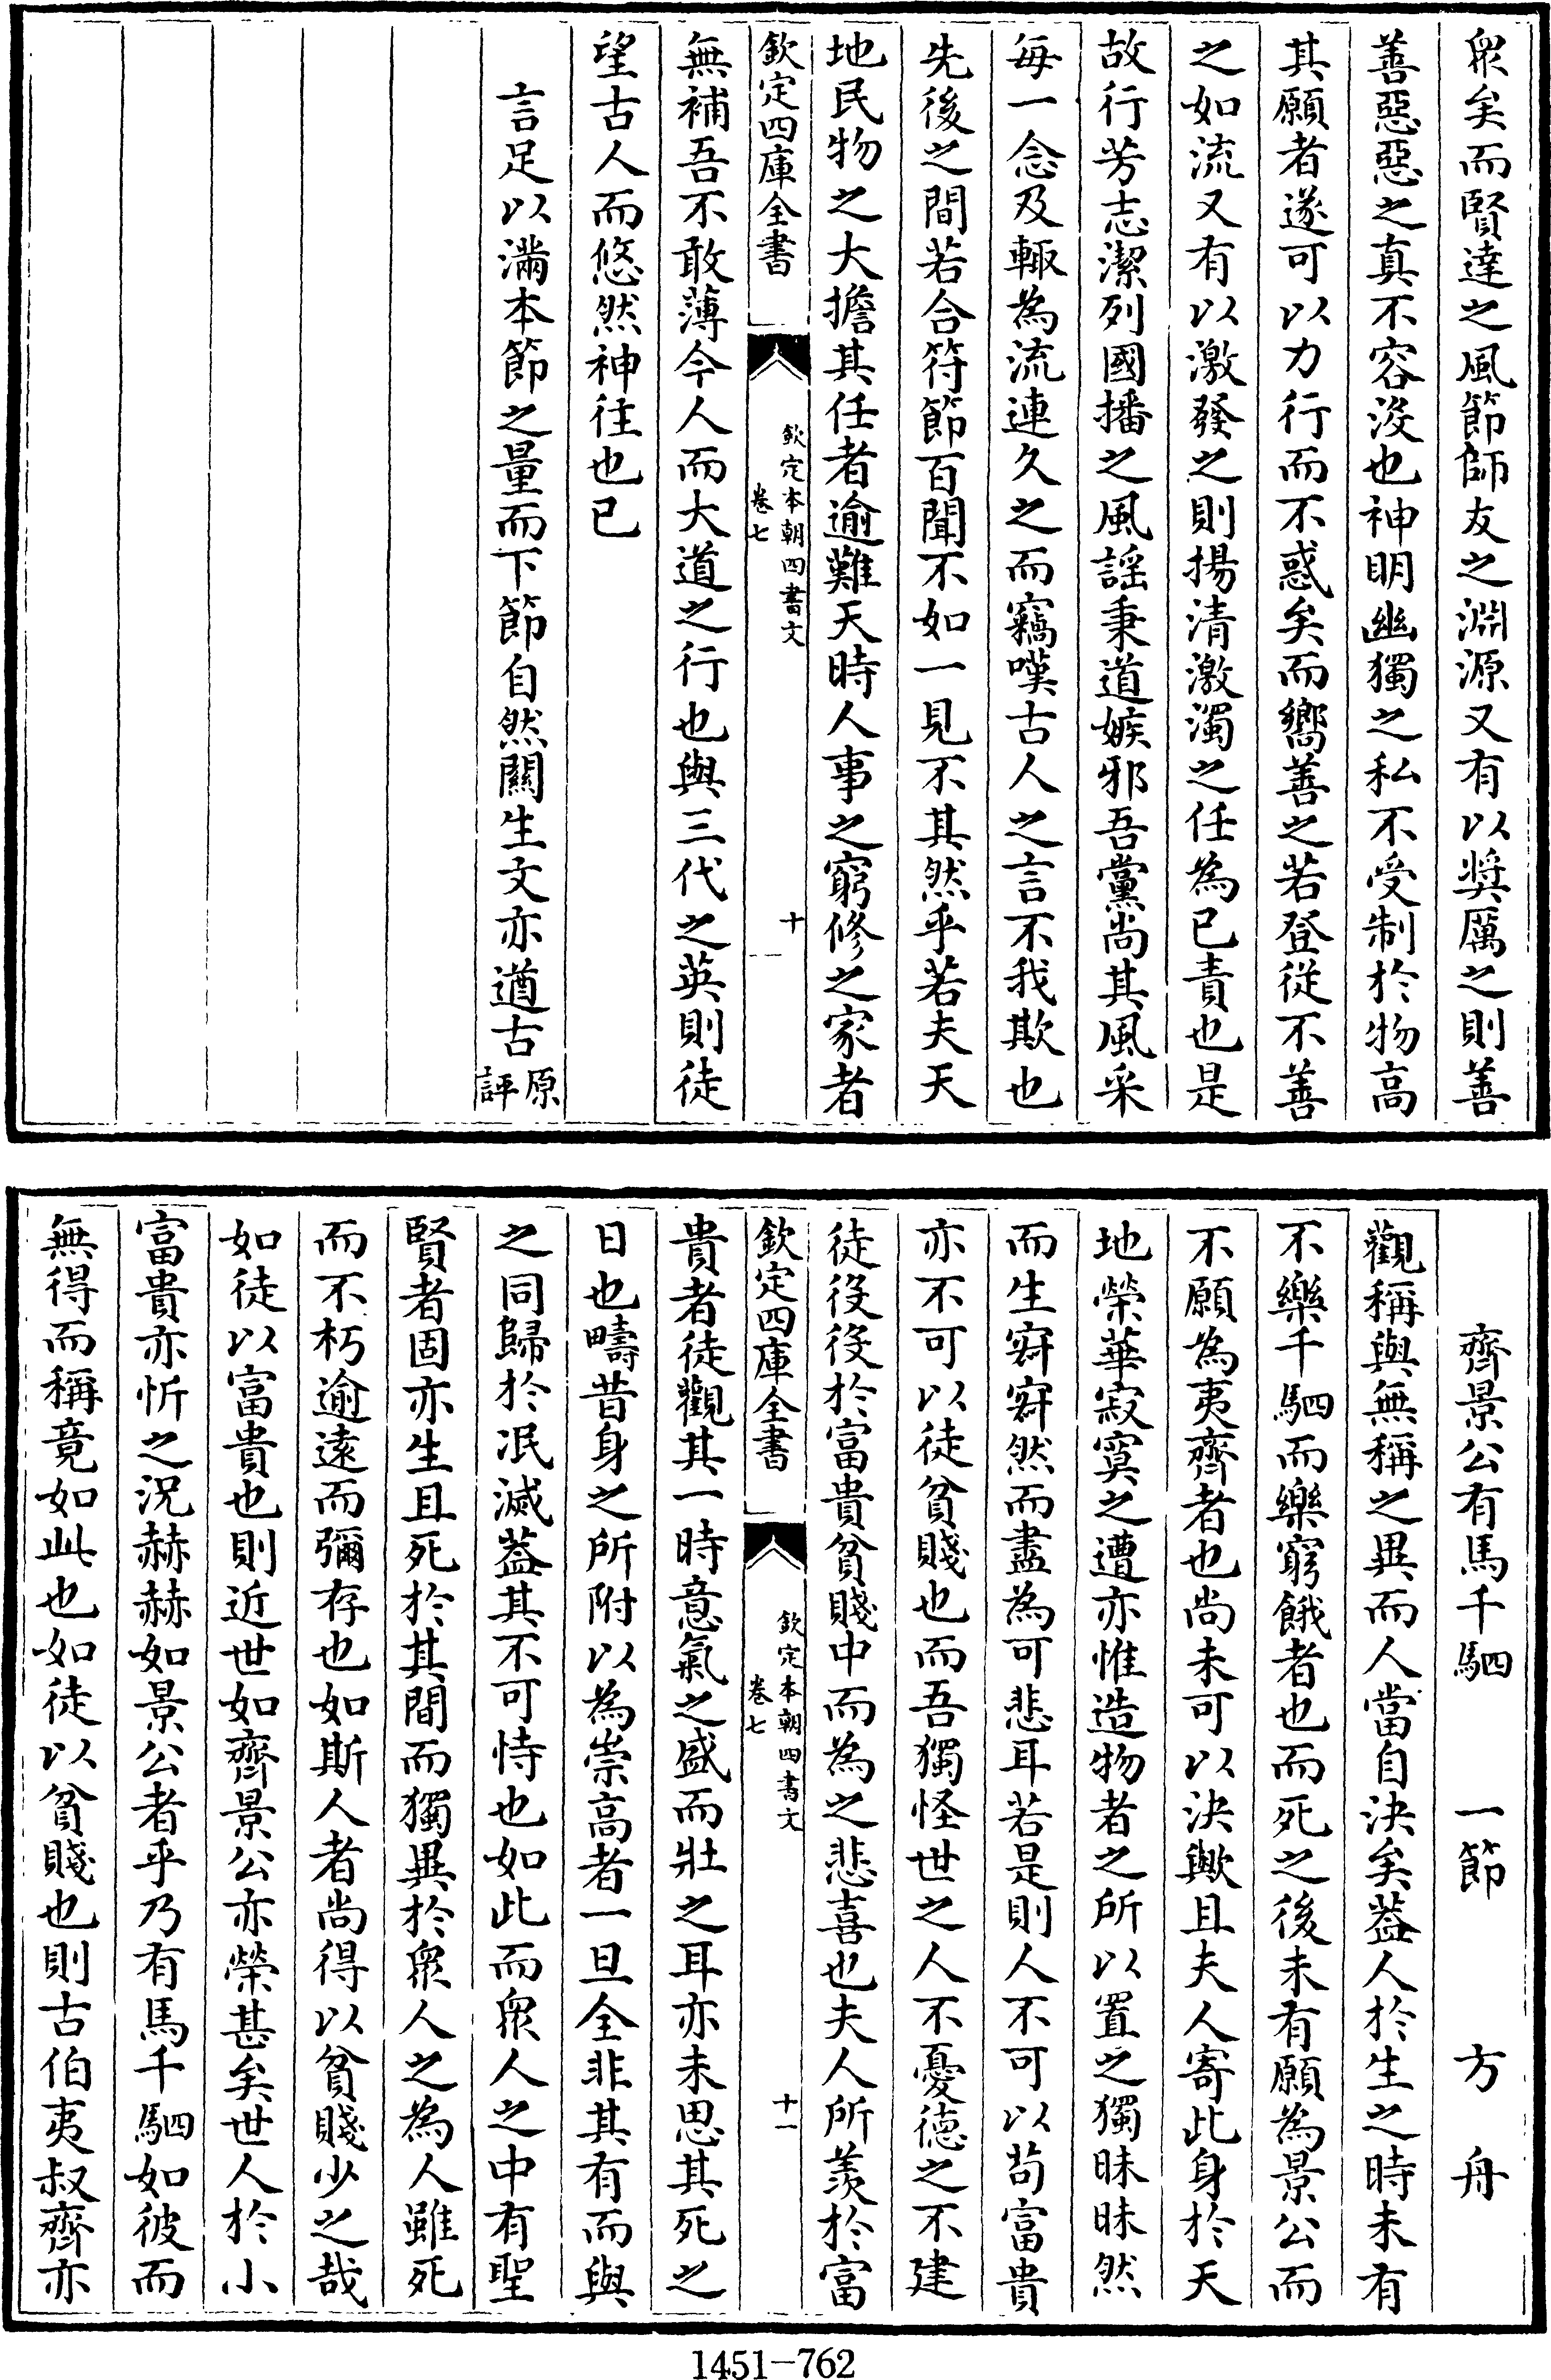 眾矣而賢達之風節師友之淵源又有以奬厲之則善
善惡惡之真不容没也神明幽獨之私不受制於物高
其願者遂可以力行而不惑矣而嚮善之若登從不善
之如流又有以激發之則揚清激濁之任為已責也是
故行芳志潔列國播之風謡秉道嫉邪吾黨尚其風采
每一念及輙為流連久之而竊嘆古人之言不我欺也
先後之間若合符節百聞不如一見不其然乎若夫天
地民物之大擔其任者逾難天時人事之窮修之家者
欽定四庫全書
欽定本朝四書文
卷七
十
無補吾不敢薄今人而大道之行也與三代之英則徒
望古人而悠然神往也已
言足以滿本節之量而下節自然關生文亦遒古原評
齊景公有馬千駟 一節 方舟
觀稱與無稱之異而人當自決矣葢人於生之時未有
不樂千駟而樂窮餓者也而死之後未有願為景公而
不願為夷齊者也尚未可以決歟且夫人寄此身於天
地榮華寂寞之遭亦惟造物者之所以置之獨昧昧然
而生寂寂然而盡為可悲耳若是則人不可以苟富貴
亦不可以徒貧賤也而吾獨怪世之人不憂德之不建
徒役役於富貴貧賤中而為之悲喜也夫人所羨於富
欽定四庫全書
欽定本朝四書文
卷七
十一
貴者徒觀其一時意氣之盛而壯之耳亦未思其死之
日也疇昔身之所附以為崇高者一旦全非其有而與
之同歸於泯滅葢其不可恃也如此而眾人之中有聖
賢者固亦生且死於其間而獨異於眾人之為人雖死
而不朽逾遠而彌存也如斯人者尚得以貧賤少之哉
如徒以富貴也則近世如齊景公亦榮甚矣世人於小
富貴亦忻之況赫赫如景公者乎乃有馬千駟如彼而
無得而稱竟如此也如徒以貧賤也則古伯夷叔齊亦
1451-762